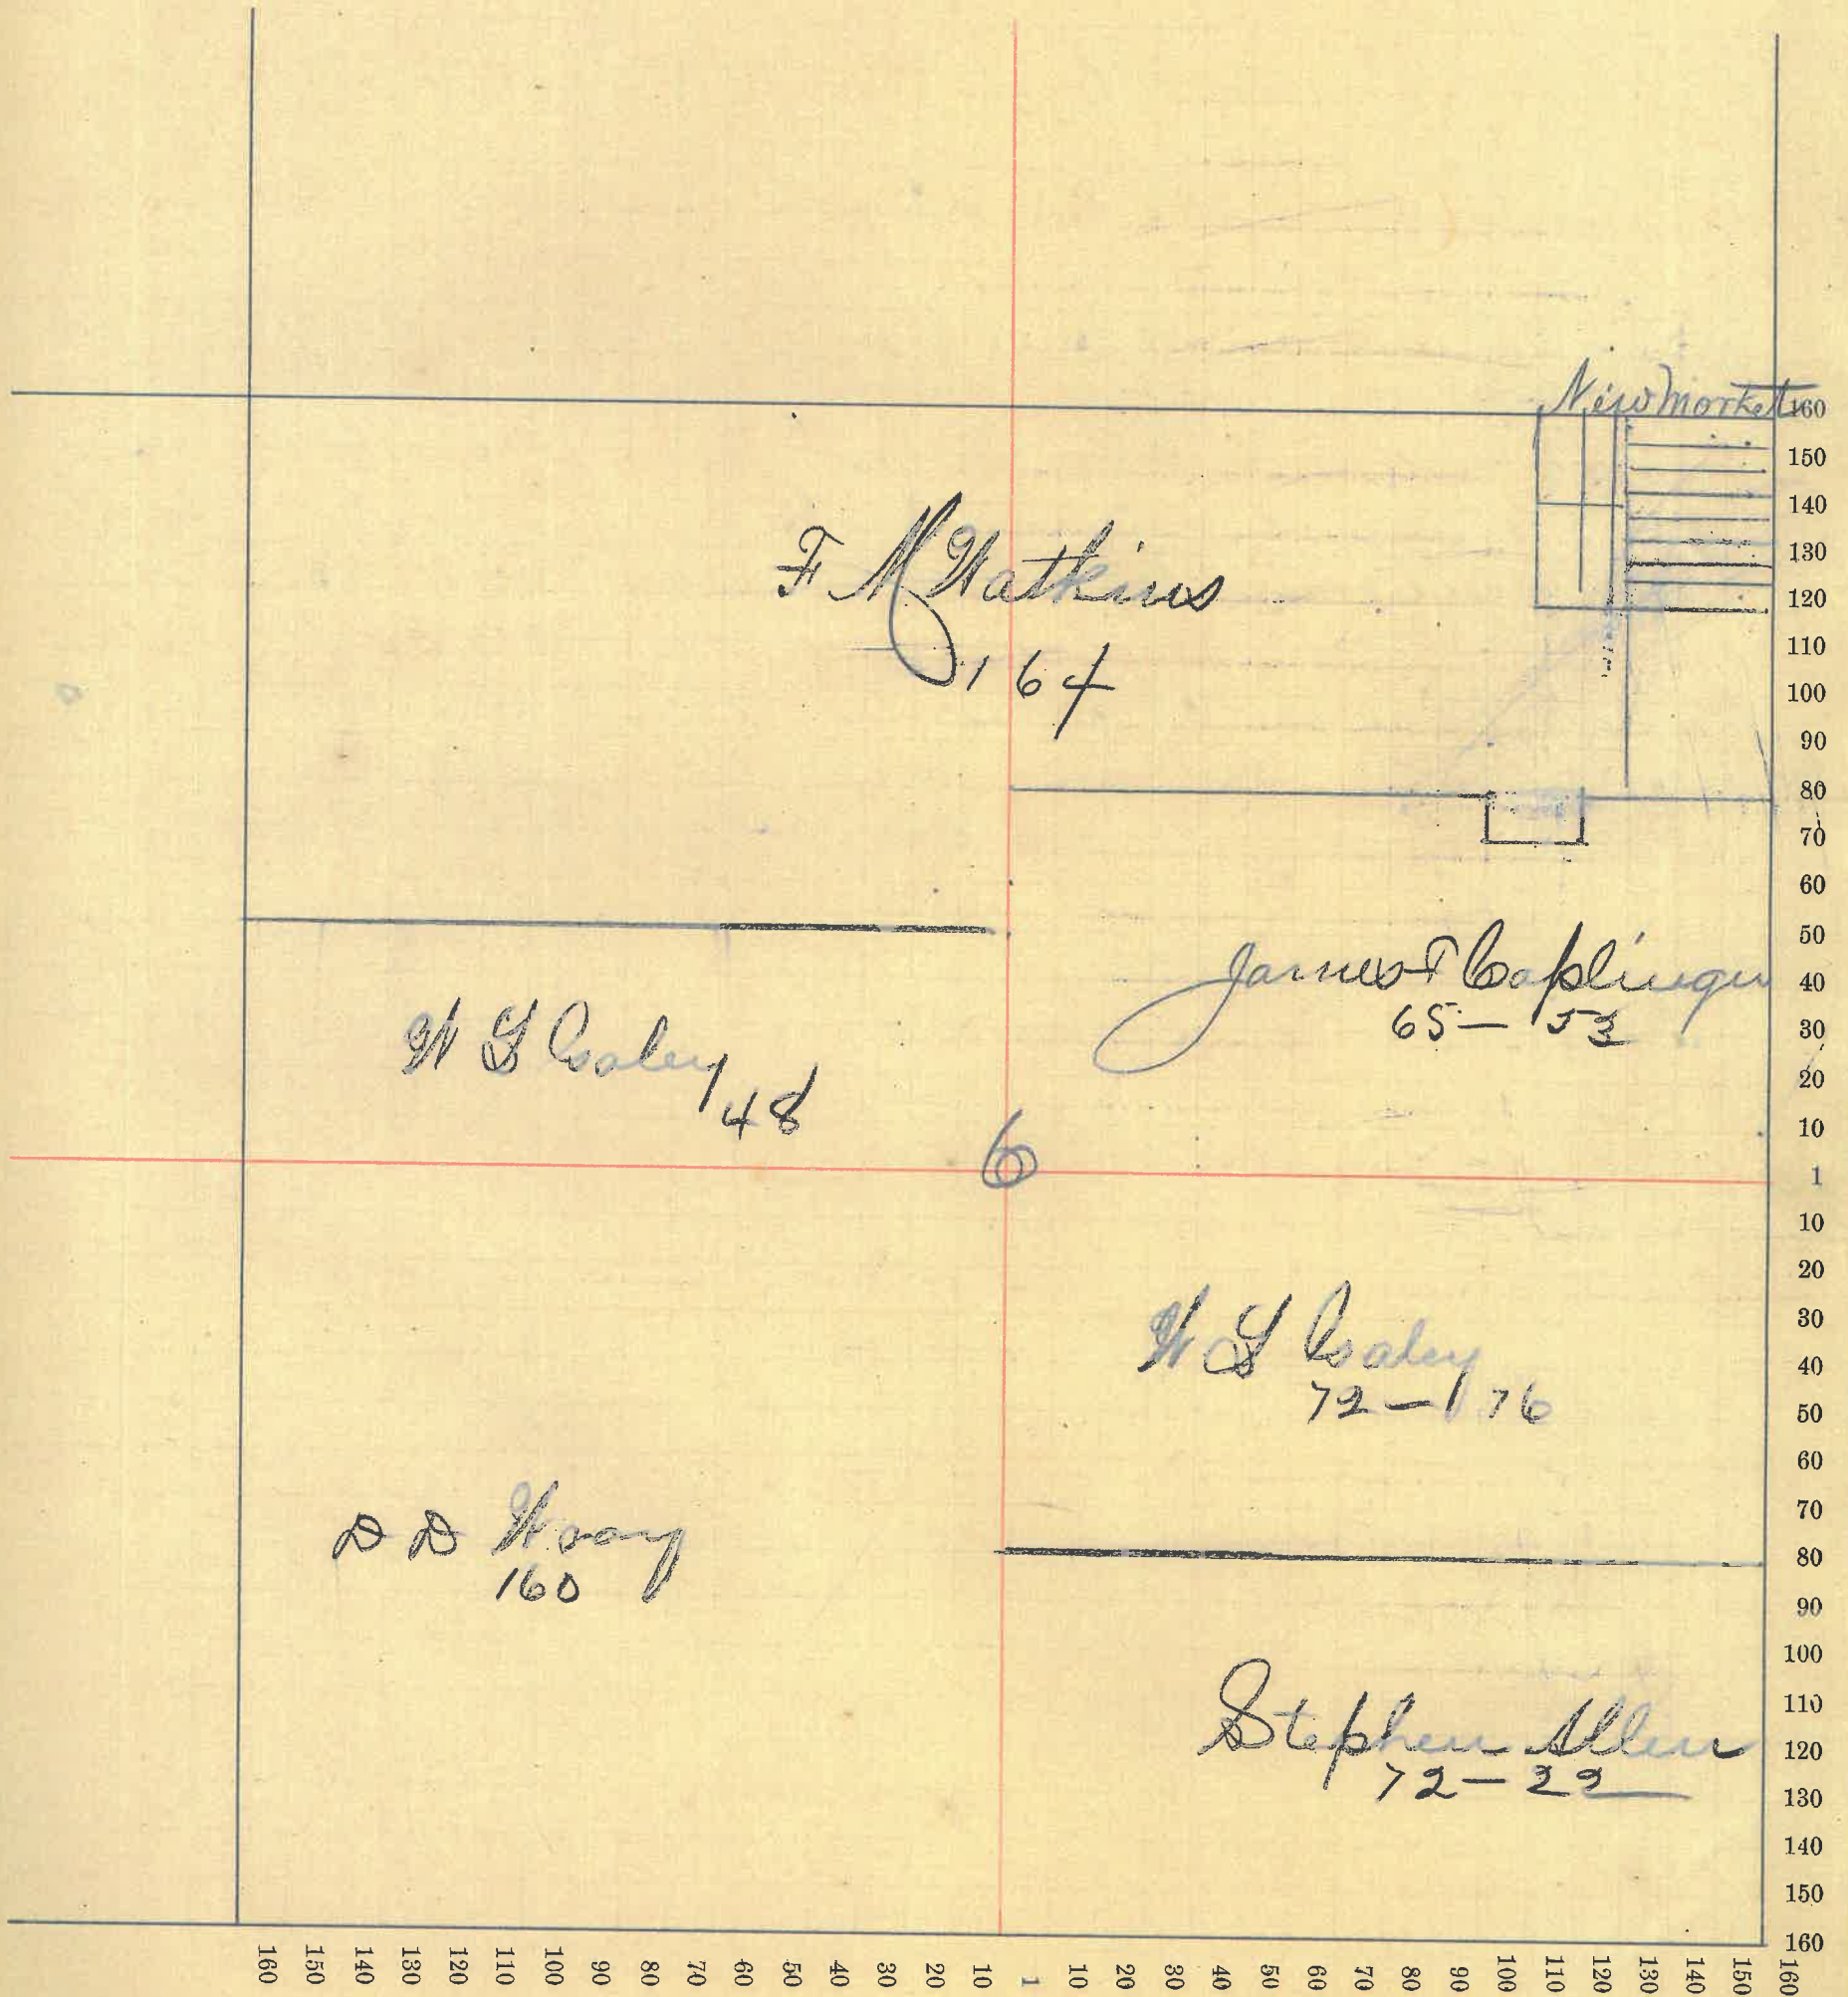 New Market
F M Watkins
164
James T Caplinger
65 — 53
W G Coaley
48
6
W G Coaley
72 — 176
D D
160
Stephen Allen
72 — 22
160
150
140
130
120
110
100
90
80
70
60
50
40
30
20
10
1
10
20
30
40
50
60
70
80
90
100
110
120
130
140
150
160
160 150 140 130 120 110 100 90 80 70 60 50 40 30 20 10 1 10 20 30 40 50 60 70 80 90 100 110 120 130 140 150 160